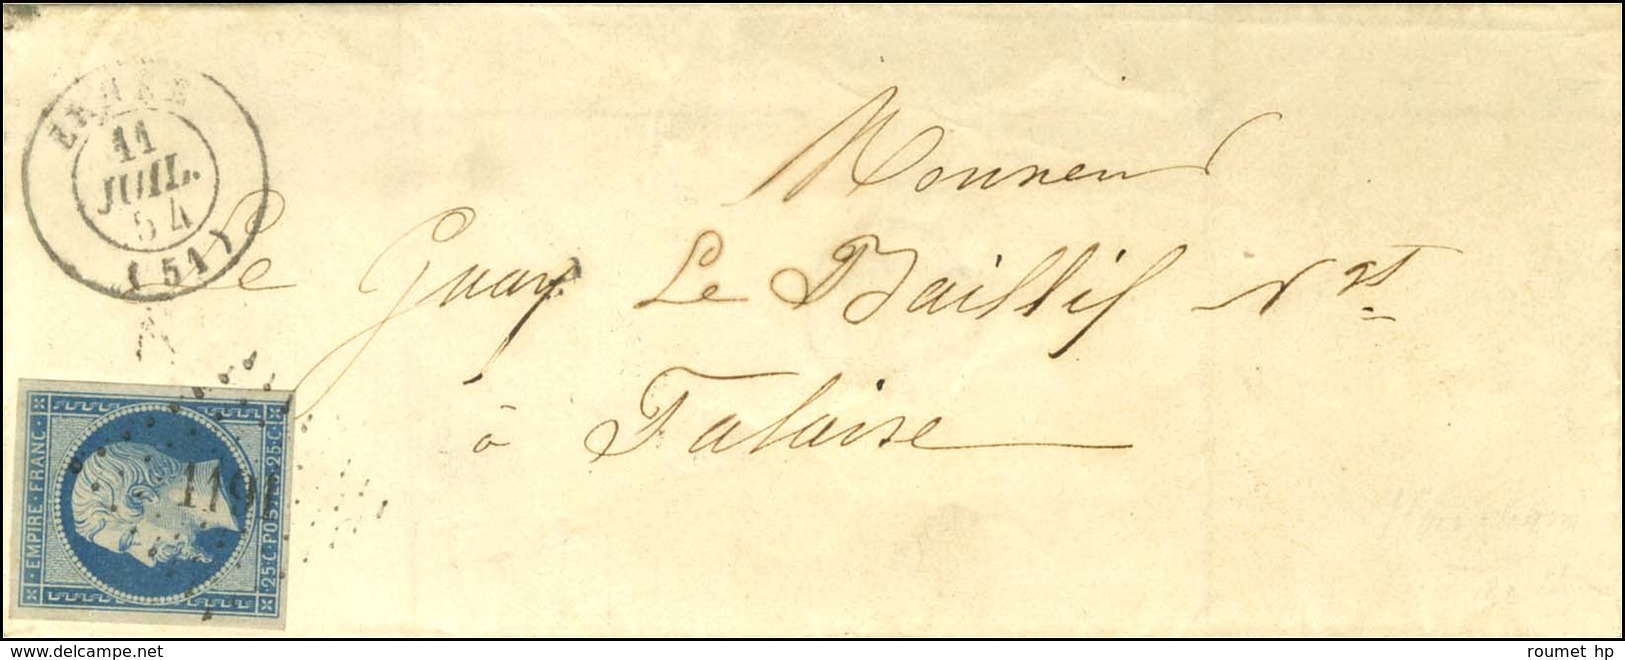 ERNEE
11
JUIL.
54
(51)
Monsieur
Le Guay Le Baillif
à Falaise
EMPIRE · FRANC ·
25 · C · POSTES · 25 · C ·
119
www.delcampe.net
roumet hp